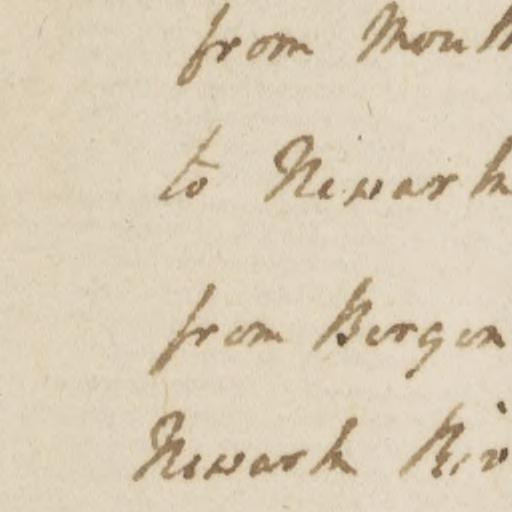 from Mou
to Newark
from Bergen
Newark Riv